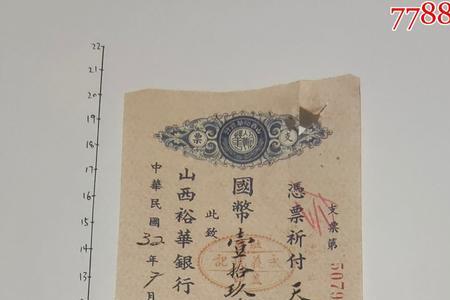 7788
22
21
20
19
18
17
16
15
14
13
支票
支票第 5079
憑票祈付 天
國幣 壹拾玖
此致
山西裕華銀行
中華民國 32 年 7 月